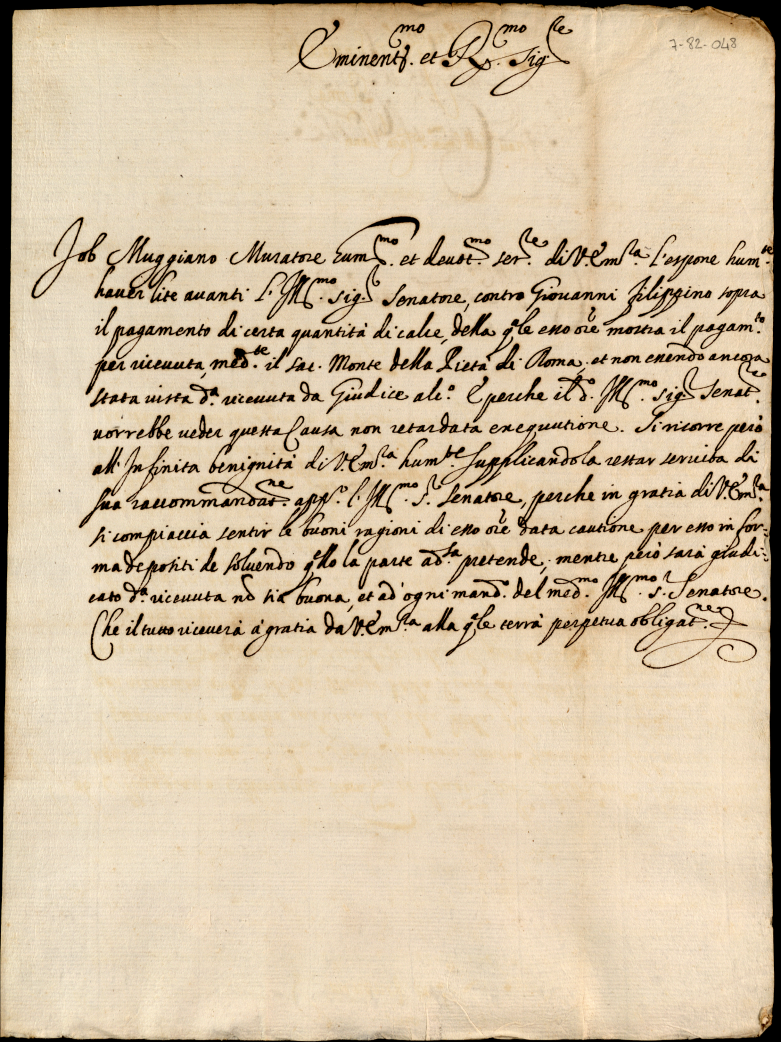 7-82-048
Eminent.mo et R.mo Sig.re
Job Muggiano Muratore hum.mo et deuot.mo ser.re di V. Em.za l'espone hum.te
hauer lite auanti l'Ill.mo Sig.r Senatore, contro Giouanni Filippino sopra
il pagamento di certa quantità di calce, della q.le esso Ore mostra il pagam.to
per riceuuta, med.te il Sac. Monte della Pietà di Roma, et non essendo ancora
stata uista d.a riceuuta da Giudice alc.o E perche il d.o Ill.mo Sig.r Senat.re
uorrebbe ueder questa Causa non retardata essequutione. Si ricorre però
all'Infinita benignità di V. Em.za hum.te supplicandola restar seruita di
sua raccommandat.ne app.o l'Ill.mo S.r Senatore, perche in gratia di V. Em.za
si compiaccia sentir le buoni ragioni di esso Ore data cautione per esso in for-
ma depositi de soluendo q.llo la parte ad.sa pretende, mentre però sarà giudi-
cato d.a riceuuta nō sia buona, et ad' ogni mand.o del med.mo Ill.mo S.r Senatore.
Che il tutto riceuerà à gratia da V. Em.za alla q.le terrà perpetua obligat.ne